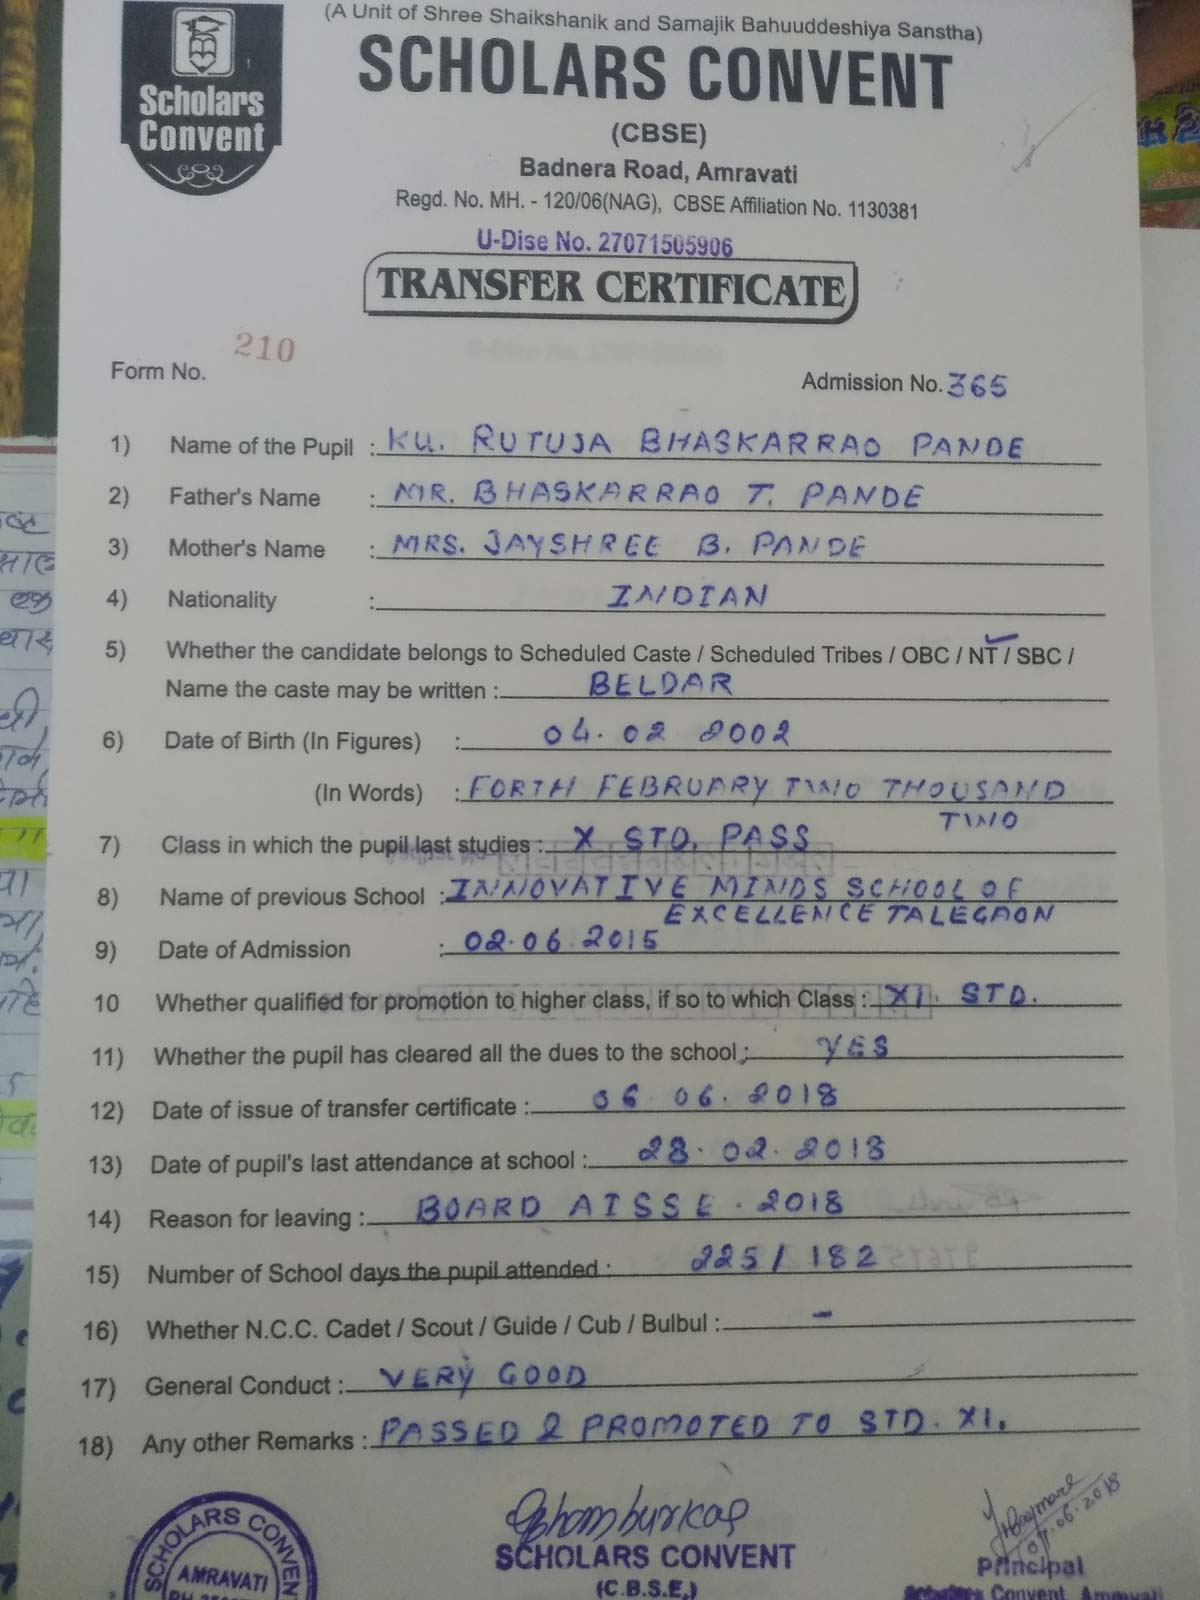 (A Unit of Shree Shaikshanik and Samajik Bahuuddeshiya Sanstha)
Scholars
Convent
SCHOLARS CONVENT
(CBSE)
Badnera Road, Amravati
Regd. No. MH. - 120/06(NAG), CBSE Affiliation No. 1130381
U-Dise No. 27071505906
TRANSFER CERTIFICATE
Form No. 210
Admission No. 365
1) Name of the Pupil : KU. RUTUJA BHASKARRAO PANDE
2) Father's Name : MR. BHASKARRAO T. PANDE
3) Mother's Name : MRS. JAYSHREE B. PANDE
4) Nationality : INDIAN
5) Whether the candidate belongs to Scheduled Caste / Scheduled Tribes / OBC / NT / SBC /
Name the caste may be written : BELDAR
6) Date of Birth (In Figures) : 04.02 2002
(In Words) : FORTH FEBRUARY TWO THOUSAND
TWO
7) Class in which the pupil last studies : X STD. PASS
8) Name of previous School : INNOVATIVE MINDS SCHOOL OF
EXCELLENCE TALEGAON
9) Date of Admission : 02.06.2015
10 Whether qualified for promotion to higher class, if so to which Class : XI. STD.
11) Whether the pupil has cleared all the dues to the school : YES
12) Date of issue of transfer certificate : 06.06.2018
13) Date of pupil's last attendance at school : 28.02.2018
14) Reason for leaving : BOARD AISSE. 2018
15) Number of School days the pupil attended : 225/182
16) Whether N.C.C. Cadet / Scout / Guide / Cub / Bulbul : -
17) General Conduct : VERY GOOD
18) Any other Remarks : PASSED & PROMOTED TO STD. XI.
SCHOLARS CONVENT
AMRAVATI
SCHOLARS CONVENT
(C.B.S.E.)
06.2018
Principal
Convent, Amravati